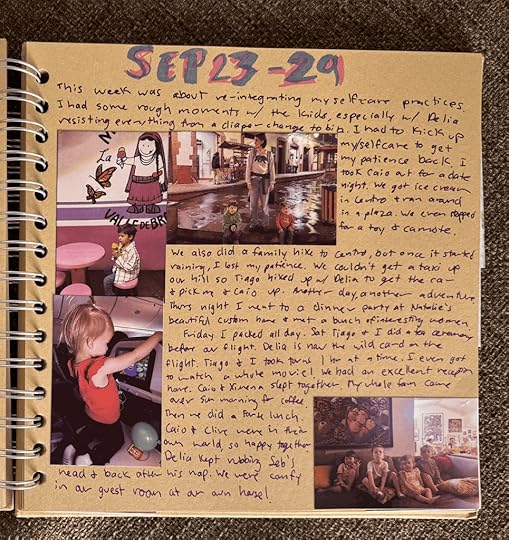 SEP 23 - 29
This week was about re-integrating my selfcare practices.
I had some rough moments w/ the kids, especially w/ Delia
resisting everything from a diaper change to bib. I had to kick up
my selfcare to get
my patience back. I
took Caio out for a date
night. We got ice cream
in Centro & ran around
in a plaza. We even stopped
for a toy & camote.
La
VALLE DE BR
We also did a family hike to Centro, but once it started
raining, I lost my patience. We couldn't get a taxi up
our hill so Tiago hiked up w/ Delia to get the car
& pick me & Caio up. Another day, another adventure.
Thurs night I went to a dinner party at Natalie's
beautiful custom home & met a bunch of interesting women.
Friday I packed all day. Sat Tiago & I did a tea ceremony
before our flight. Delia is now the wild card on the
flight. Tiago & I took turns 1 hr at a time. I even got
to watch a whole movie! We had an excellent reception
here. Caio & Ximena slept together. My whole fam came
over Sun morning for coffee
Then we did a Park lunch.
Caio & Clive were in their
own world so happy together
Delia kept rubbing Seb's
head & back after his nap. We were comfy
in our guest room at our own house!